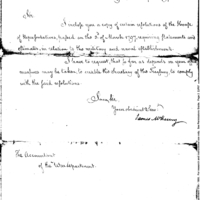 Sir,
I enclose you a copy of certain resolutions of the House
of Representatives, passed on the 3d of March 1797, requiring statements and
estimates, in relation to the military and naval establishments.
I have to request, that so far as depends on you
measures may be taken to enable the Secretary of the Treasury to comply
with the said resolutions.
I am, Sir,
Your obedient Serv.
James McHenry
The Accountant
of the War department.